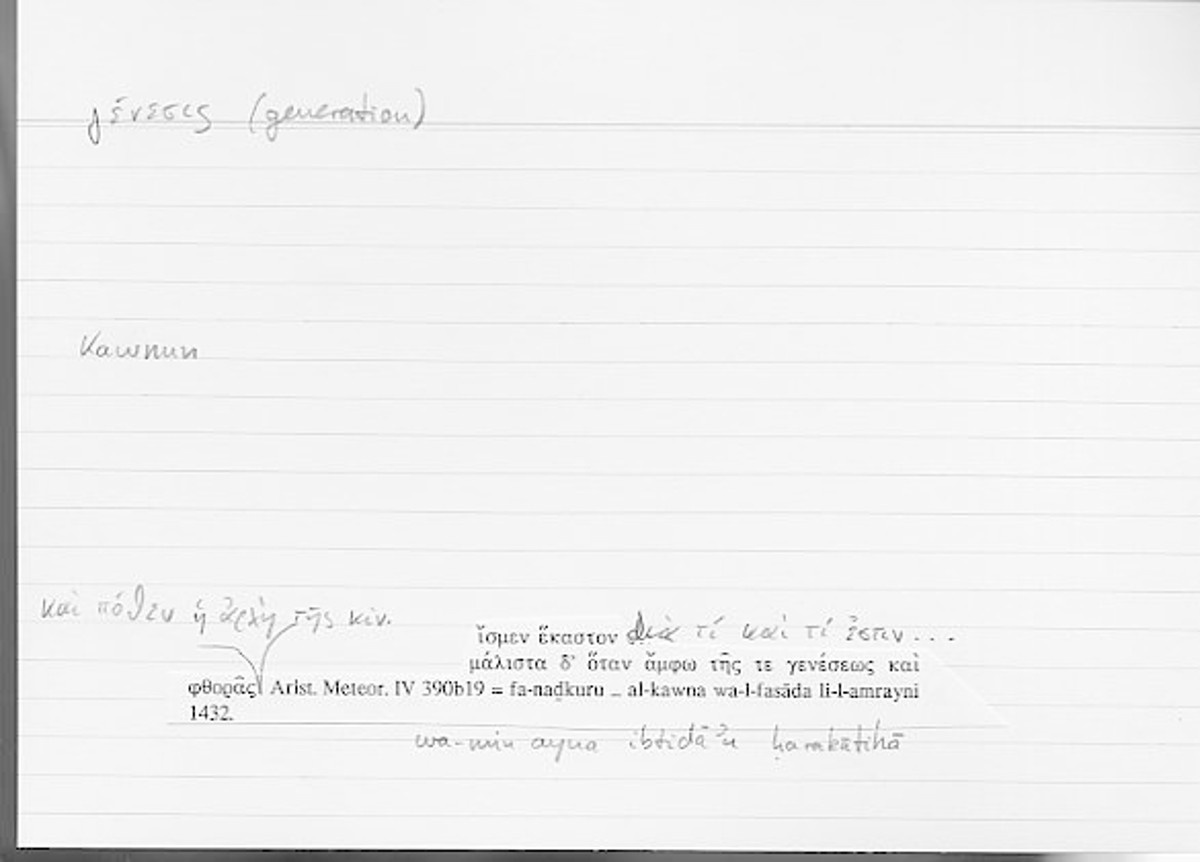 γένεσις (generation)
Kawnun
καὶ πόθεν ἡ ἀρχὴ τῆς κιν.
ἴσμεν ἕκαστον διὰ τί καὶ τί ἐστιν ...
μάλιστα δ' ὅταν ἄμφω τῆς τε γενέσεως καὶ
φθορᾶς Arist. Meteor. IV 390b19 = fa-naḏkuru _ al-kawna wa-l-fasāda li-l-amrayni
1432.
wa-min ayna ibtidāʾu ḥarakātihā